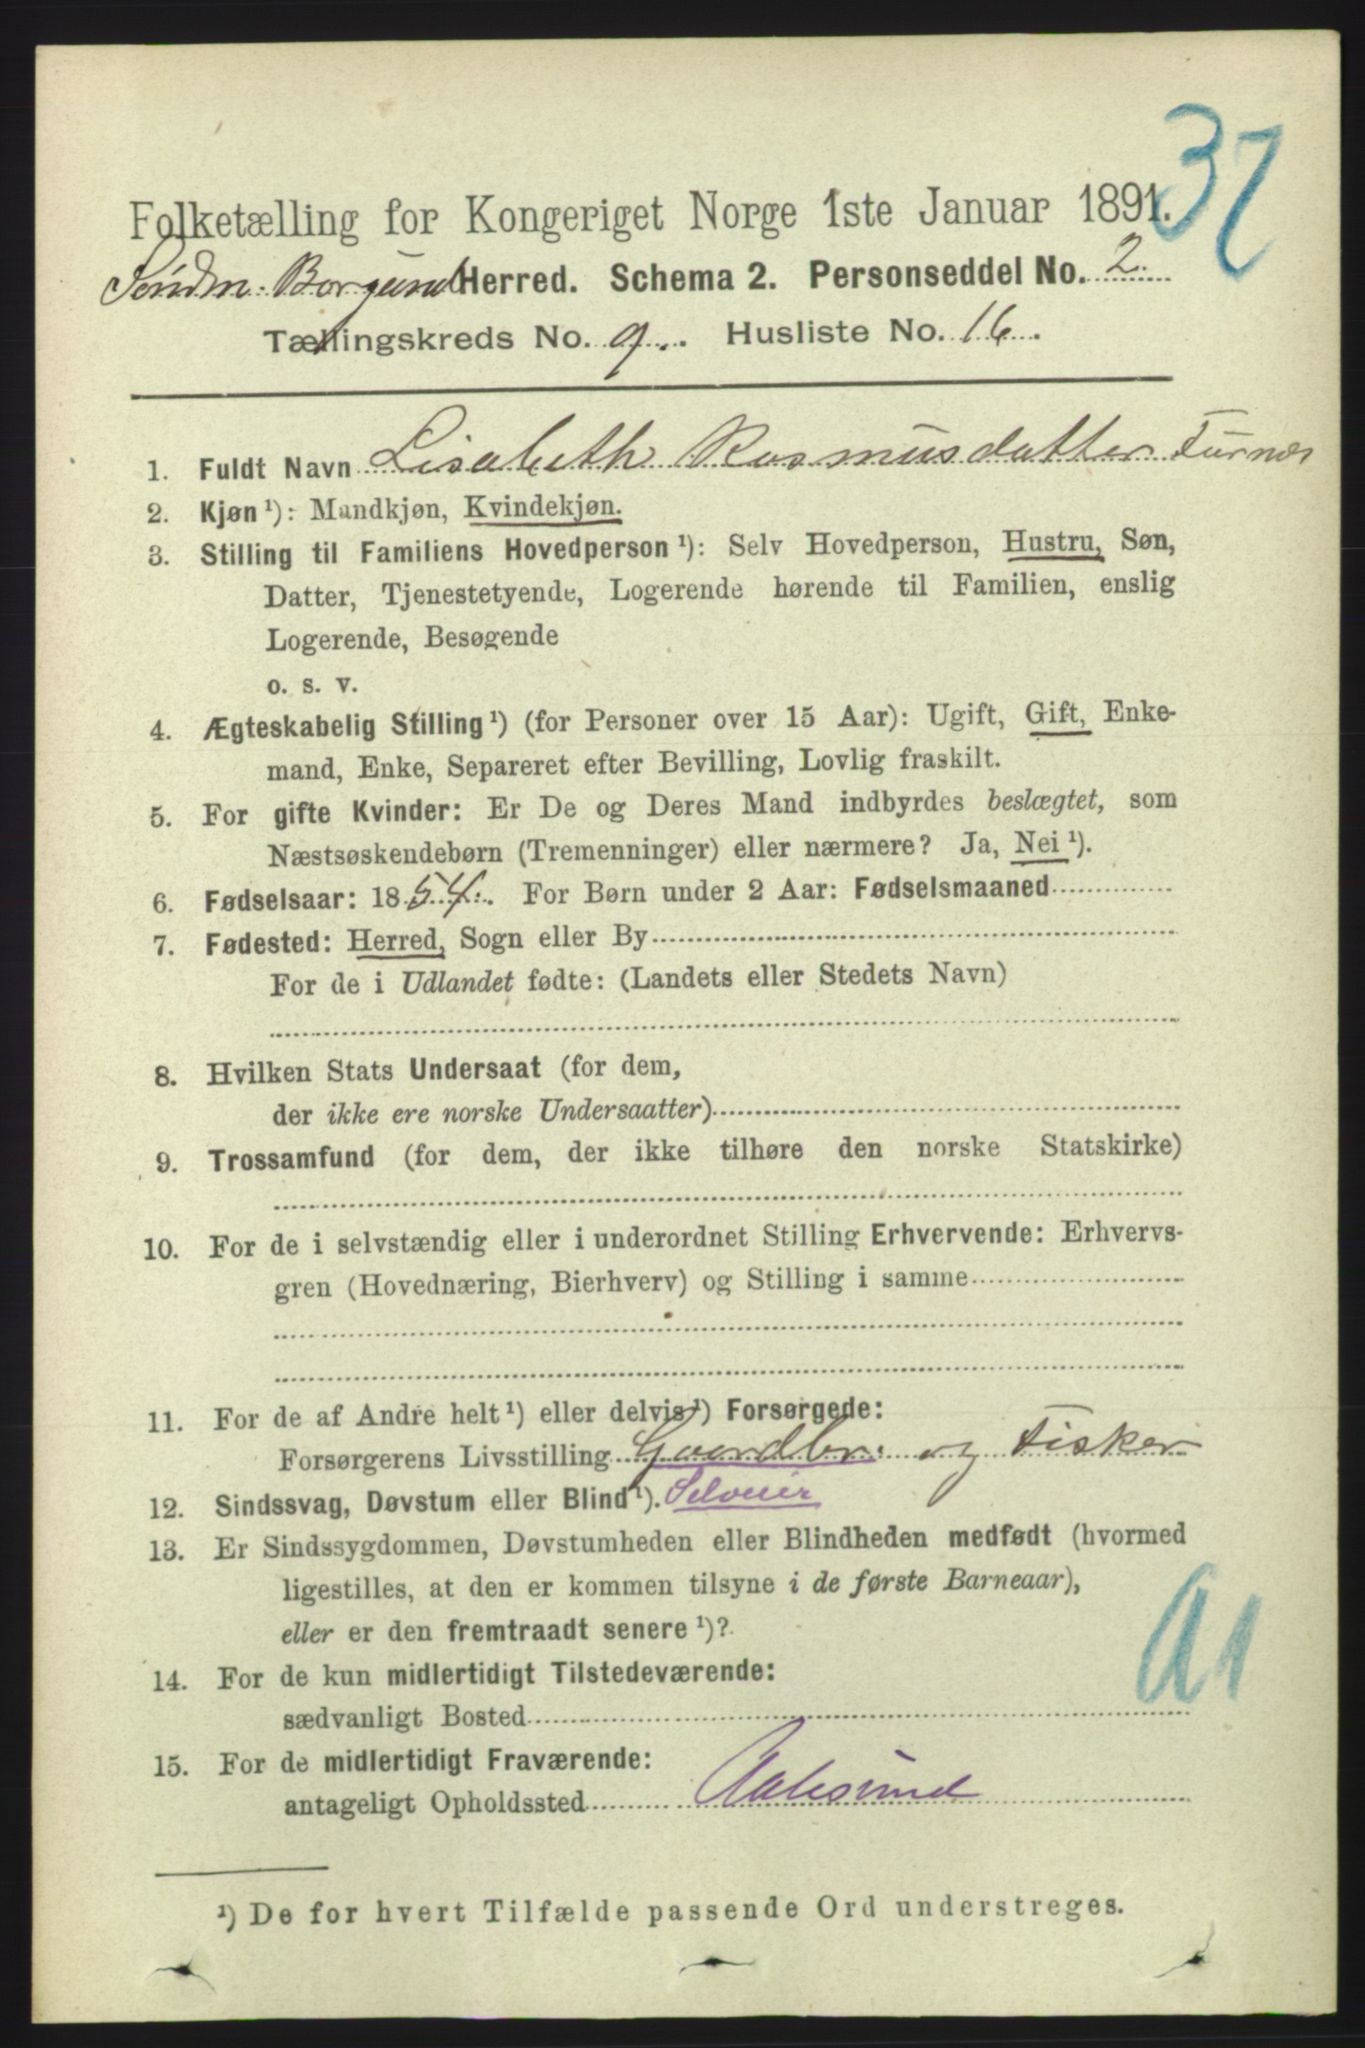 37
Folketælling for Kongeriget Norge 1ste Januar 1891.
Søndm. Borgund Herred. Schema 2. Personseddel No. 2.
Tællingskreds No. 9. Husliste No. 16.
1. Fuldt Navn Lisabeth Rasmusdatter Furnæs
2. Kjøn¹): Mandkjøn, Kvindekjøn.
3. Stilling til Familiens Hovedperson¹): Selv Hovedperson, Hustru, Søn,
Datter, Tjenestetyende, Logerende hørende til Familien, enslig
Logerende, Besøgende
o. s. v.
4. Ægteskabelig Stilling¹) (for Personer over 15 Aar): Ugift, Gift, Enke-
mand, Enke, Separeret efter Bevilling, Lovlig fraskilt.
5. For gifte Kvinder: Er De og Deres Mand indbyrdes beslægtet, som
Næstsøskendebørn (Tremenninger) eller nærmere? Ja, Nei¹).
6. Fødselsaar: 1854. For Børn under 2 Aar: Fødselsmaaned
7. Fødested: Herred, Sogn eller By
For de i Udlandet fødte: (Landets eller Stedets Navn)
8. Hvilken Stats Undersaat (for dem,
der ikke ere norske Undersaatter)
9. Trossamfund (for dem, der ikke tilhøre den norske Statskirke)
10. For de i selvstændig eller i underordnet Stilling Erhvervende: Erhvervs-
gren (Hovednæring, Bierhverv) og Stilling i samme
11. For de af Andre helt¹) eller delvis¹) Forsørgede:
Forsørgerens Livsstilling Gaardbr. og Fisker
12. Sindssvag, Døvstum eller Blind¹). Selveier
13. Er Sindssygdommen, Døvstumheden eller Blindheden medfødt (hvormed
ligestilles, at den er kommen tilsyne i de første Barneaar),
eller er den fremtraadt senere¹)?
14. For de kun midlertidigt Tilstedeværende:
sædvanligt Bosted
15. For de midlertidigt Fraværende:
antageligt Opholdssted Aalesund
¹) De for hvert Tilfælde passende Ord understreges.